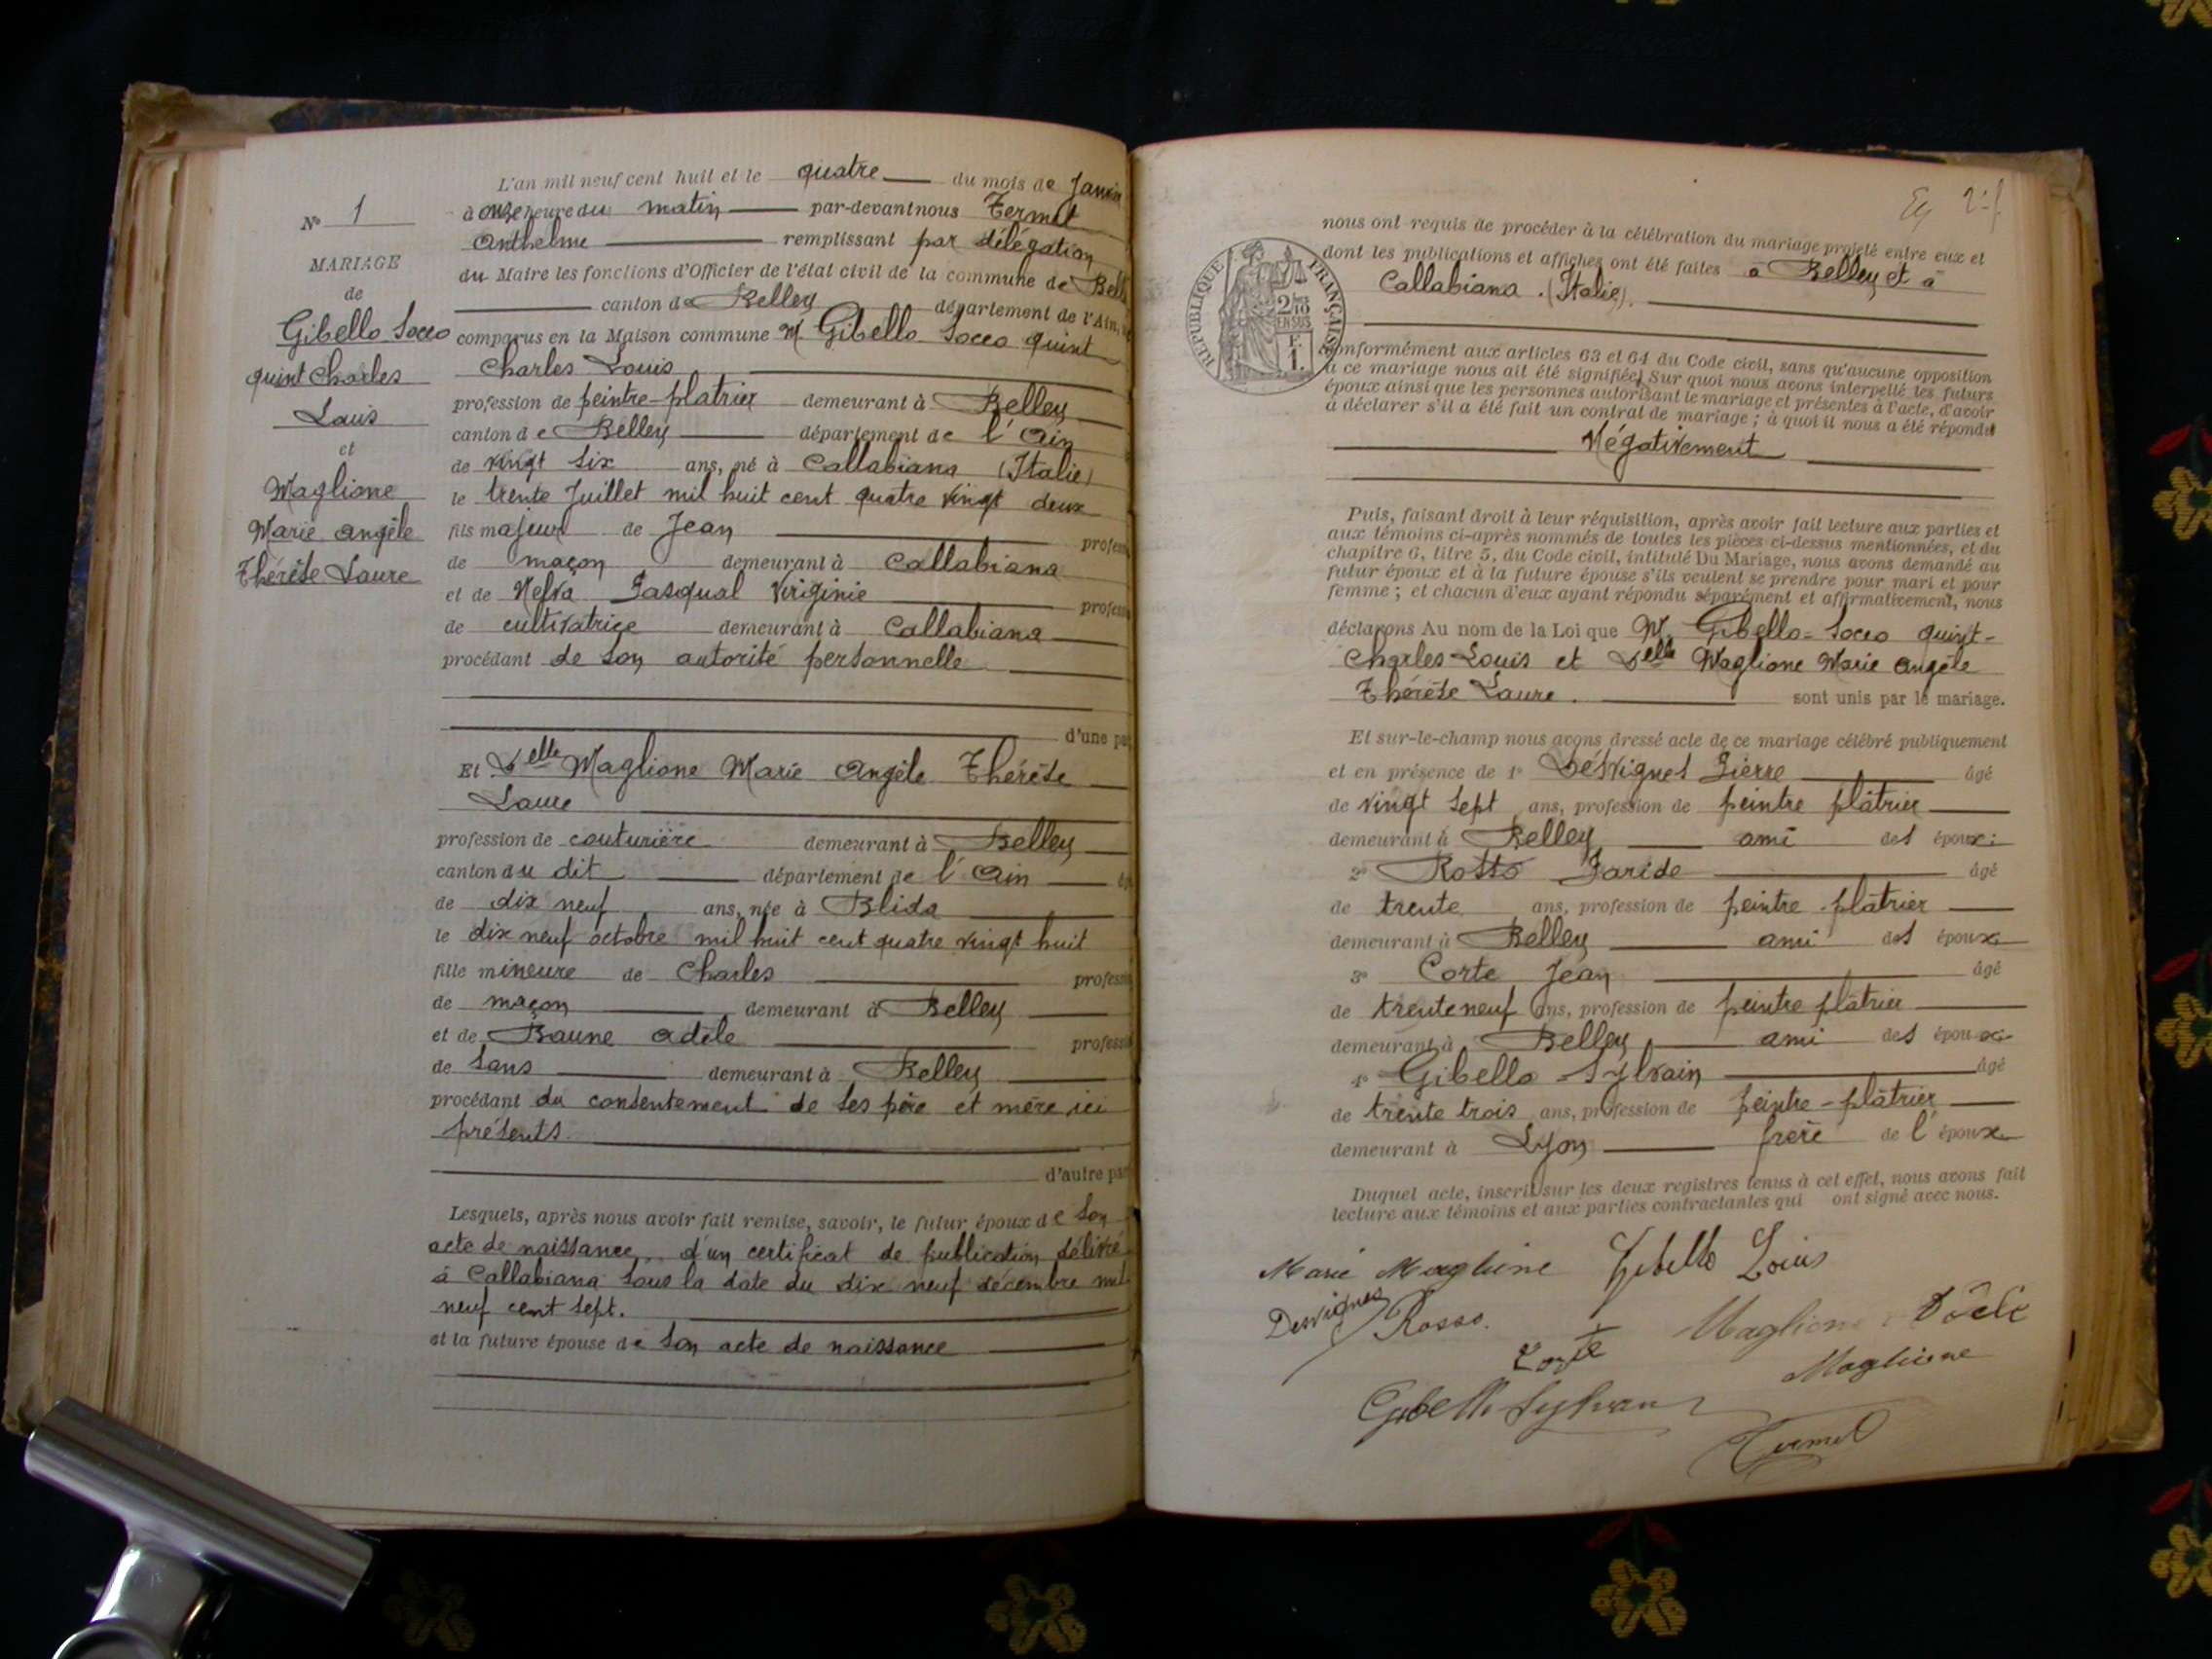 N° 1
MARIAGE
de
Gibello Socco
quint Charles
Louis
et
Maglione
Marie Angèle
Thérèse Laure
L'an mil neuf cent huit et le quatre du mois de Janvier
à onze heure du matin par-devant nous Termet
Anthelme remplissant par délégation
du Maire les fonctions d'Officier de l'état civil de la commune de Belley
canton de Belley département de l'Ain,
comparus en la Maison commune M. Gibello Socco quint
Charles Louis
profession de peintre-plâtrier demeurant à Belley
canton de Belley département de l'Ain
de vingt six ans, né à Callabiana (Italie)
le trente Juillet mil huit cent quatre vingt deux
fils majeur de Jean profess
de maçon demeurant à Callabiana
et de Nelva Pasqual Virginie profess
de cultivatrice demeurant à Callabiana
procédant de son autorité personnelle
d'une pa
Et Delle Maglione Marie Angèle Thérèse
Laure
profession de couturière demeurant à Belley
canton du dit département de l'Ain
de dix neuf ans, née à Blida
le dix neuf octobre mil huit cent quatre vingt huit
fille mineure de Charles profess
de maçon demeurant à Belley
et de Baune Adèle profess
de sans demeurant à Belley
procédant du consentement de ses père et mère ici
présents.
d'autre pa
Lesquels, après nous avoir fait remise, savoir, le futur époux de son
acte de naissance, d'un certificat de publication délivré
à Callabiana sous la date du dix neuf décembre mil
neuf cent sept.
et la future épouse de son acte de naissance
2
RÉPUBLIQUE FRANÇAISE
2/10
EN SUS
F.
1.
nous ont requis de procéder à la célébration du mariage projeté entre eux et
dont les publications et affiches ont été faites à Belley et à
Callabiana. (Italie).
conformément aux articles 63 et 64 du Code civil, sans qu'aucune opposition
à ce mariage nous ait été signifiée. Sur quoi nous avons interpellé les futurs
époux ainsi que les personnes autorisant le mariage et présentes à l'acte, d'avoir
à déclarer s'il a été fait un contrat de mariage ; à quoi il nous a été répondu
Négativement
Puis, faisant droit à leur réquisition, après avoir fait lecture aux parties et
aux témoins ci-après nommés de toutes les pièces ci-dessus mentionnées, et du
chapitre 6, titre 5, du Code civil, intitulé Du Mariage, nous avons demandé au
futur époux et à la future épouse s'ils veulent se prendre pour mari et pour
femme ; et chacun d'eux ayant répondu séparément et affirmativement, nous
déclarons Au nom de la Loi que M. Gibello-Socco quint-
Charles-Louis et Delle Maglione Marie Angèle
Thérèse Laure. sont unis par le mariage.
Et sur-le-champ nous avons dressé acte de ce mariage célébré publiquement
et en présence de 1° Désvignes Pierre âgé
de vingt sept ans, profession de peintre plâtrier
demeurant à Belley ami des époux.
2° Rosso Paride âgé
de trente ans, profession de peintre-plâtrier
demeurant à Belley ami des époux
3° Corte Jean âgé
de trente neuf ans, profession de peintre plâtrier
demeurant à Belley ami des époux
4° Gibello Sylvain âgé
de trente trois ans, profession de peintre-plâtrier
demeurant à Lyon frère de l'époux
Duquel acte, inscrit sur les deux registres tenus à cet effet, nous avons fait
lecture aux témoins et aux parties contractantes qui ont signé avec nous.
Marie Maglione Gibello Louis
Desvignes Rosso. Maglione
Corte Maglione
Gibello Sylvain
Termet